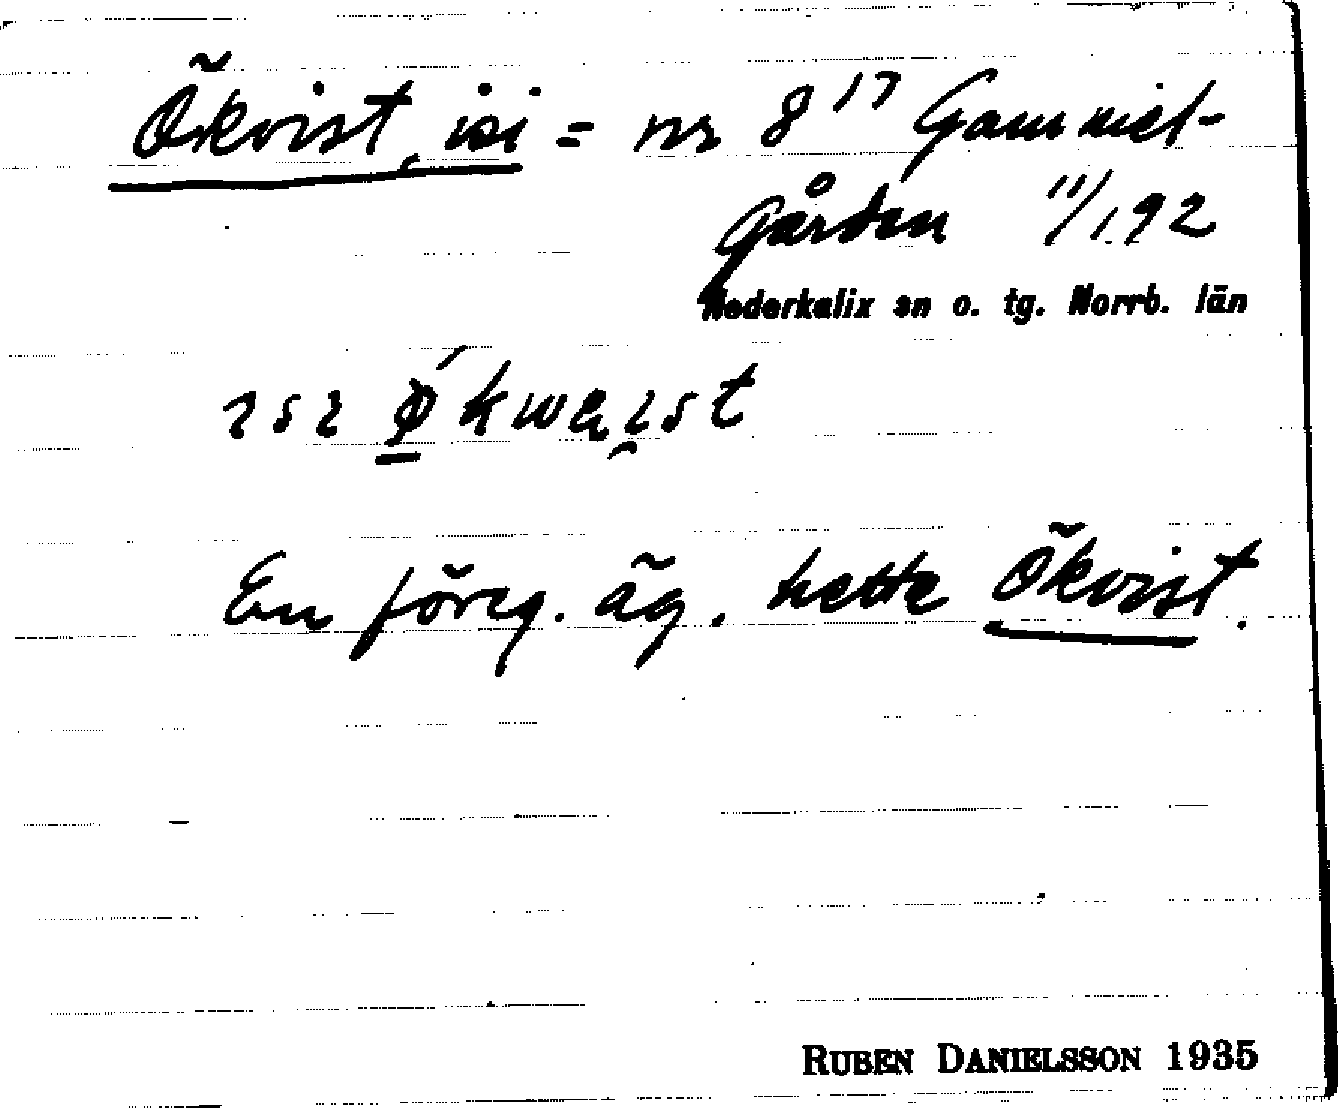 Ökvist, isi = nr 8¹⁷ Gammel-
gården 11/1.92
Nederkalix sn o. tg. Norrb. län
En föreg. äg. hette Ökvist.
RUBEN DANIELSSON 1935